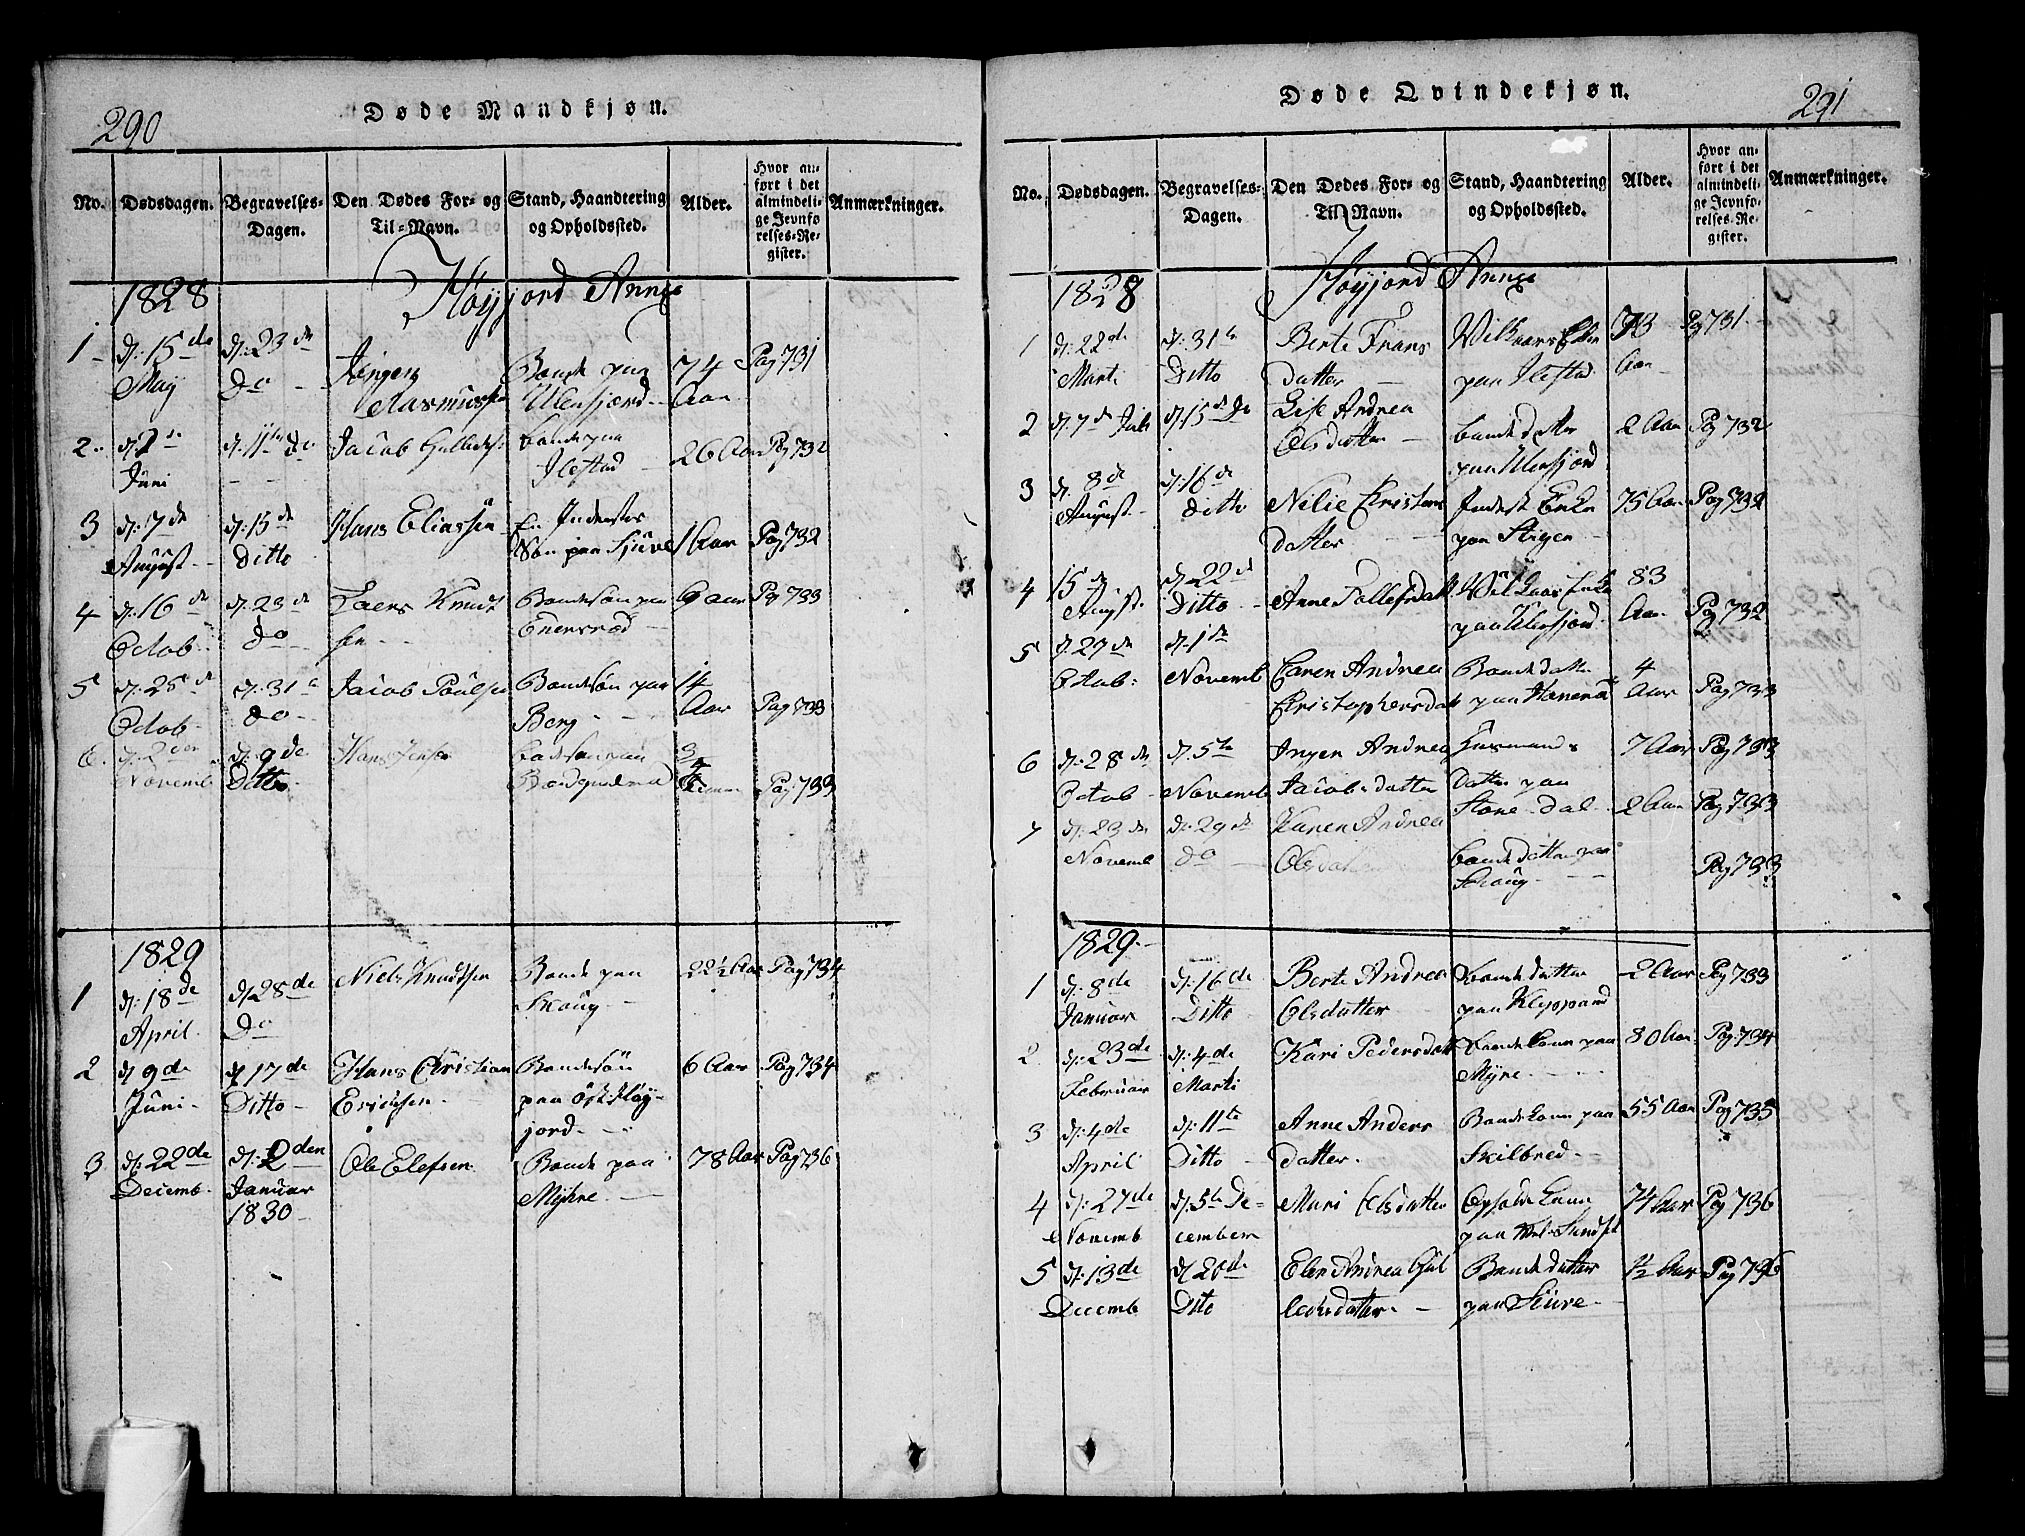 290
Døde Mandkjøn.
No. Dødsdagen. Begravelses-Dagen. Den Dødes For- og Til-Navn. Stand, Haandtering og Opholdssted. Alder. Hvor anført i det almindelige Jevnførelses-Register. Anmærkninger.
1828 Høyjord Annex
1 d: 15de d: 23de Jørgen Bonde paa 74 Pag 731
May Do Rasmussen Ulensjord Aar
2 Jacob bonde paa 26 Aar Pag 732
Juni Ilestad
3 d: 7de d: 15de Hans Eliassen En Inderstes 1 Aar Pag 732
August Ditto Søn paa Sjuve
4 d: 16de d: 23de Laers Knudt Bondesøn paa 9 Aar Pag 733
Octob. do sen
5 d: 25de d: 31te Jacob Poulsen Bondesøn paa 14 Pag 733
Octob. do Berg Aar
6. d: 2den d: 9de Hans Jensen 3/4
Novemb Ditto Pag 733
1829
1 d: 18de d: 28de Niels Knudtsen Bonde paa 22½ Aar Pag 734
April Do Skoug
2 d 9de d 17de Hans Christian Bondesøn 6 Aar Pag 734
Juni Ditto Erichsen paa øst Høy-
jord
3 d: 22de d: 2den Ole Olefsen Bonde paa 78 Aar Pag 736
Decemb. Januar Myhre
1830
Døde Qvindekjøn.
291
No. Dødsdagen. Begravelses-Dagen. Den Dødes For- og Til-Navn. Stand, Haandtering og Opholdssted. Alder. Hvor anført i det almindelige Jevnførelses-Register. Anmærkninger.
1828 Høyjord Annex
1 d: 22de d: 31te Berte Frans 73 Pag 731
Marti Ditto datter paa Ilestad Aar
2 d: 7de Juli d: 15de Do Lise Andrea bonde datter 2 Aar Pag 732
Olsdatter paa Ulensjord
3 d. 8de d: 16de Nilie Christens Inderst Enke 75 Aar Pag 732
August Ditto datter paa Stigen
4 15de d: 22de Anne Tollefsdatt 83
August. Ditto paa Ulensjord Aar Pag 732
5 d. 27de d: 1ste Caren Andrea Bondedatter 4
Octob: Novemb Christophersdatt paa Aar Pag 733
6 d: 28de d: 5te Ingen Andrea Husmands 7 Aar Pag 733
Octob Novemb Jacobsdatter Datter paa
Store-dal 2 Aar Pag 733
7 d: 23de d: 29de Karen Andrea
Novemb do Olsdatter bonde datter paa Pag 733
Skoug
1829.
1 d: 8de d: 16de Berte Andrea bonde datter 2 Aar Pag 733
Januar Ditto Olsdatter paa
2 d: 23de d: 4de Kari Pedersdatt bonde kone paa 80 Aar Pag 734
Februar Marti Myre
3 d: 4de d: 11te Anne Anders Bonde kone paa 55 Aar Pag 735
April Ditto datter. Skilbred
4 d: 27de d: 5te De- Mari Olsdatter kone 74 Aar Pag 736
Novemb cember paa
5 d: 13de d 20de Elen Andrea Bonde datter 1½ Aar Pag 736
Decemb Dito paa Siuve